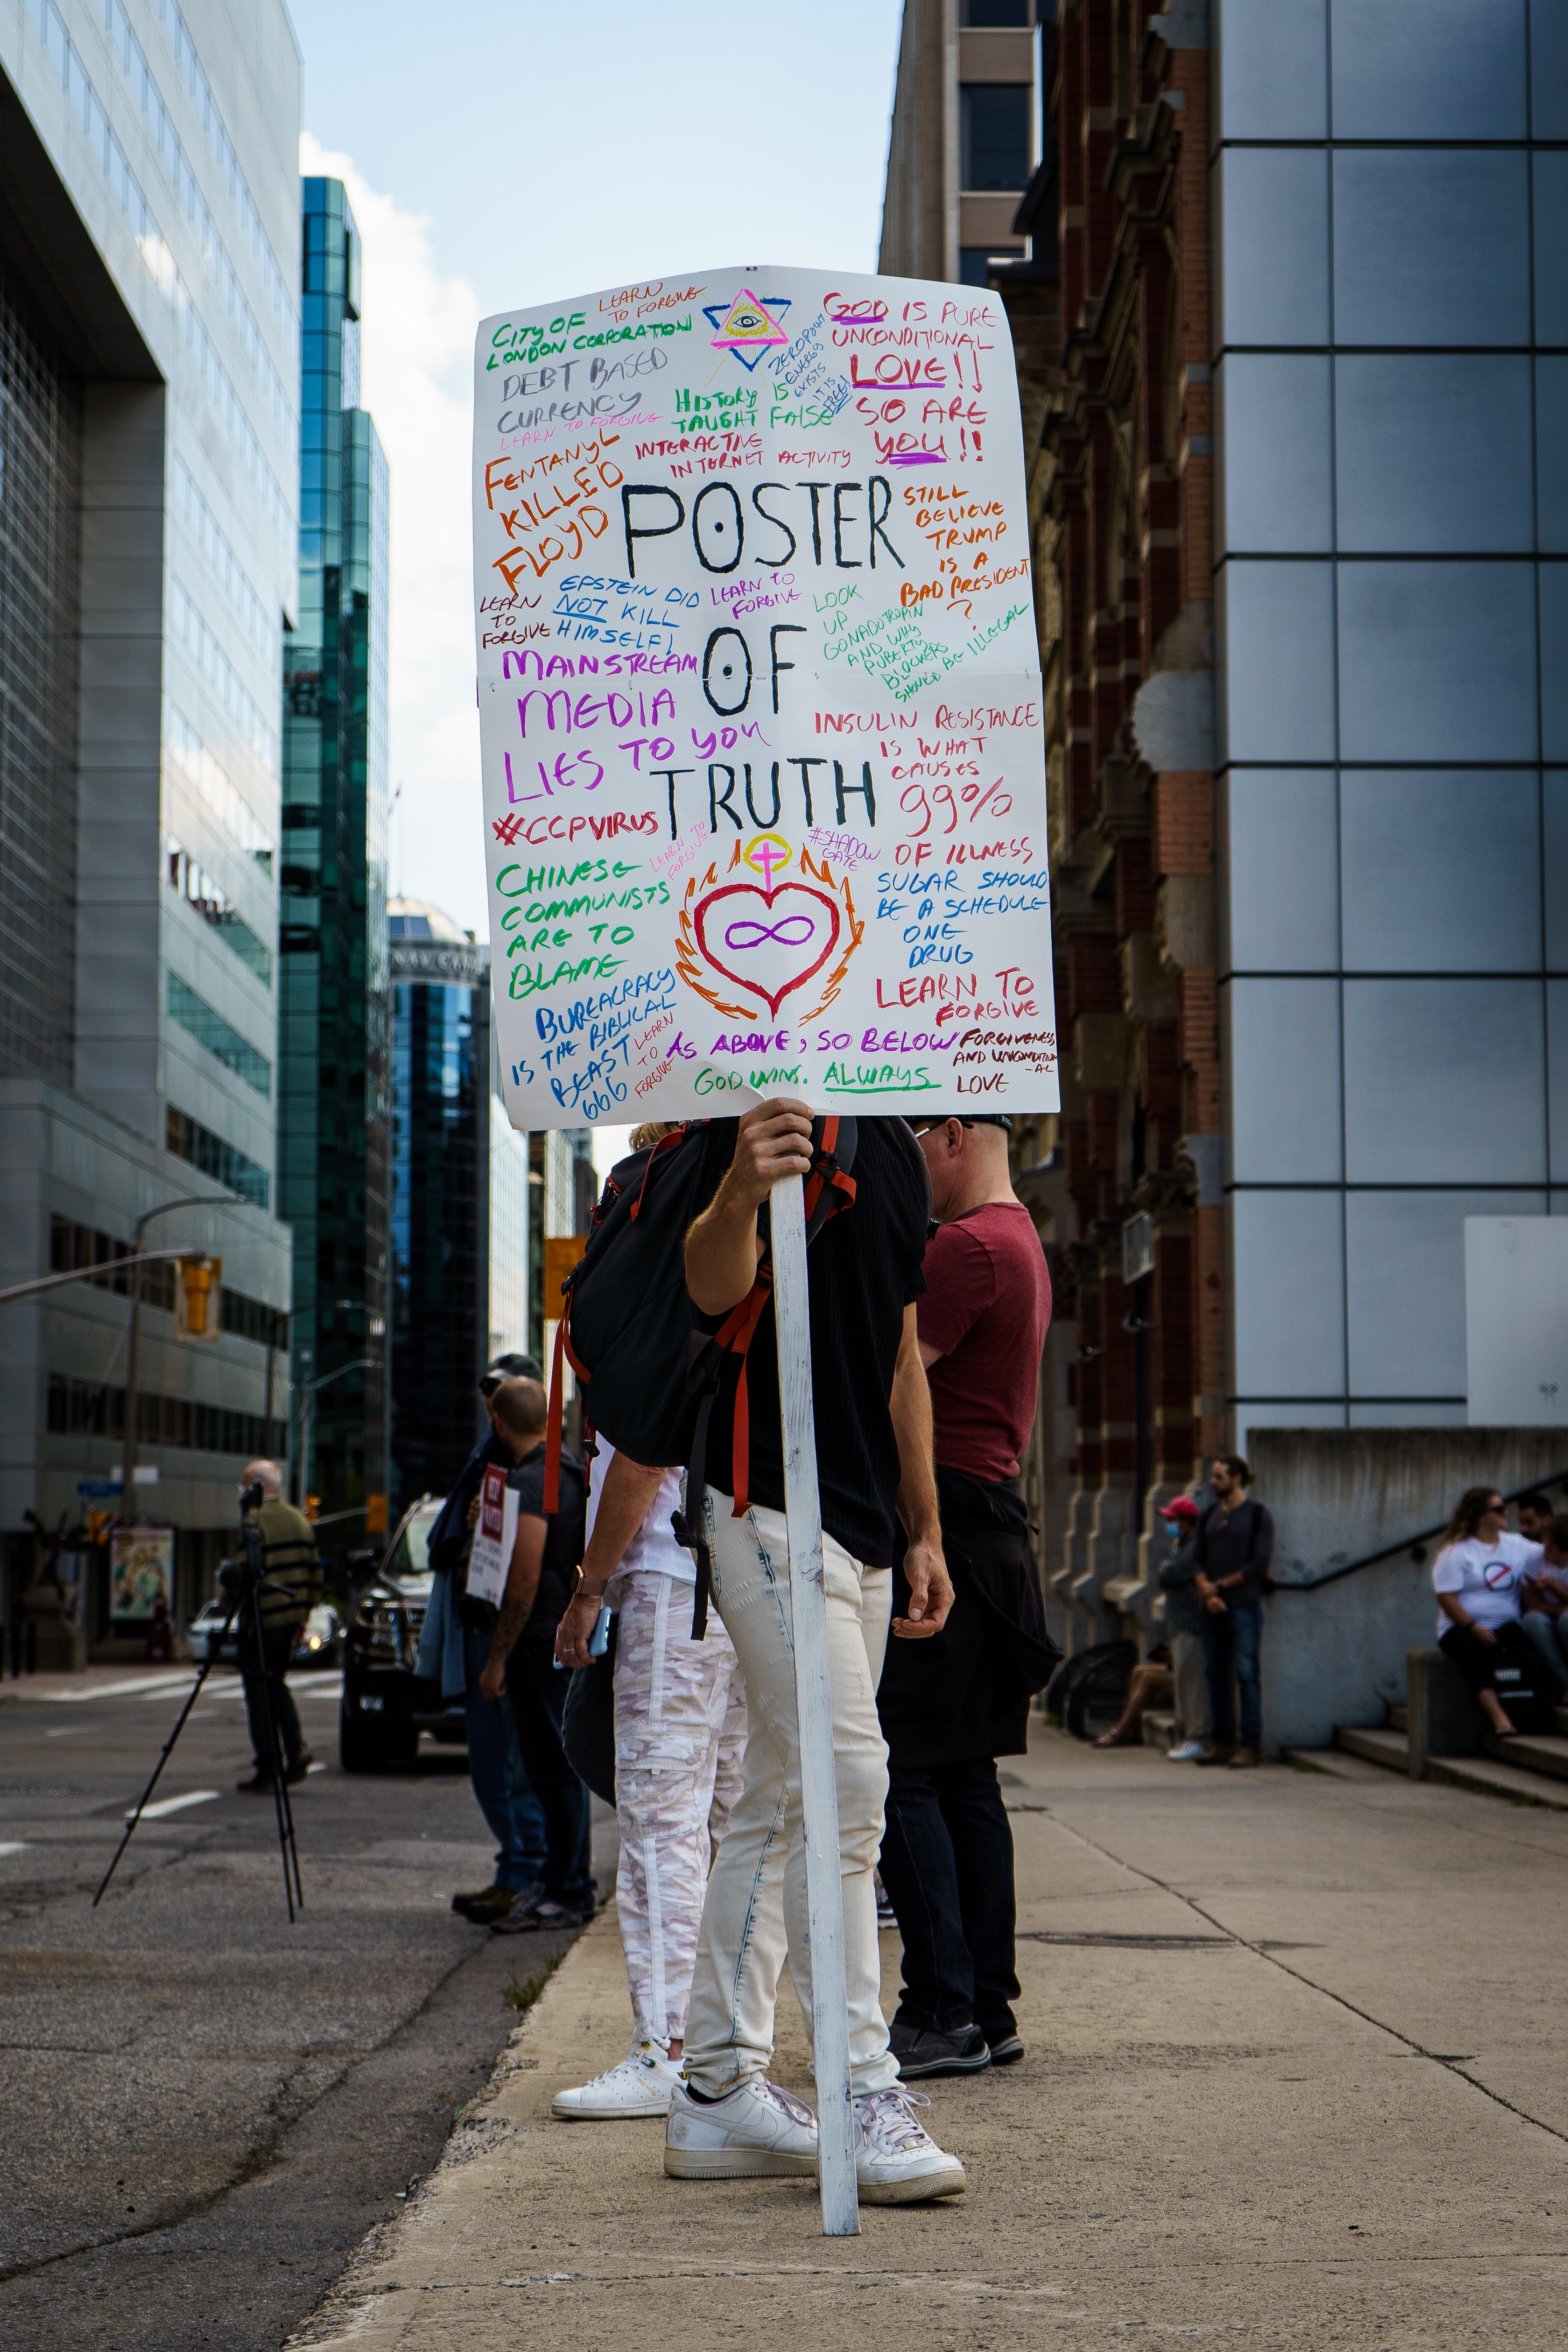 LEARN
TO FORGIVE
CITY OF
LONDON CORPORATION
DEBT BASED
CURRENCY
LEARN TO FORGIVE
ZEROPOINT
ENERGY
EXISTS
IT IS
FREE!
GOD IS PURE
UNCONDITIONAL
LOVE!!
SO ARE
YOU!!
HISTORY IS
TAUGHT FALSE
INTERACTIVE
INTERNET ACTIVITY
FENTANYL
KILLED
FLOYD
POSTER
OF
TRUTH
STILL
BELIEVE
TRUMP
IS A
BAD PRESIDENT
?
LEARN
TO
FORGIVE
EPSTEIN DID
NOT KILL
HIMSELF!
LEARN TO
FORGIVE
LOOK
UP
GONADOTROPIN
AND WHY
PUBERTY
BLOCKERS
SHOULD BE ILLEGAL
MAINSTREAM
MEDIA
LIES TO YOU
INSULIN RESISTANCE
IS WHAT
CAUSES
99%
OF ILLNESS
#CCPVIRUS
LEARN TO
FORGIVE
#SHADOW
GATE
CHINESE
COMMUNISTS
ARE TO
BLAME
SUGAR SHOULD
BE A SCHEDULE
ONE
DRUG
BUREACRACY
IS THE BIBLICAL
BEAST
666
LEARN
TO
FORGIVE
LEARN TO
FORGIVE
AS ABOVE, SO BELOW
GOD WINS. ALWAYS
FORGIVENESS
AND UNCONDITION
-AL
LOVE